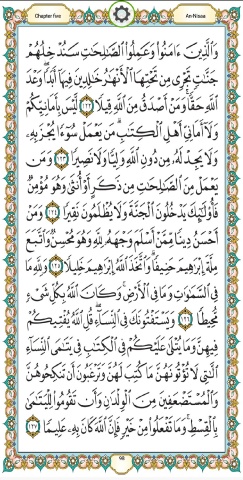 Chapter five
An-Nisaa
وَالَّذِينَ ءَامَنُوا وَعَمِلُوا الصَّالِحَاتِ سَنُدْخِلُهُمْ
جَنَّاتٍ تَجْرِي مِن تَحْتِهَا الْأَنْهَارُ خَالِدِينَ فِيهَا أَبَدًا وَعْدَ
اللَّهِ حَقًّا وَمَنْ أَصْدَقُ مِنَ اللَّهِ قِيلًا ١٢٢ لَّيْسَ بِأَمَانِيِّكُمْ
وَلَا أَمَانِيِّ أَهْلِ الْكِتَابِ مَن يَعْمَلْ سُوءًا يُجْزَ بِهِ
وَلَا يَجِدْ لَهُ مِن دُونِ اللَّهِ وَلِيًّا وَلَا نَصِيرًا ١٢٣ وَمَن
يَعْمَلْ مِنَ الصَّالِحَاتِ مِن ذَكَرٍ أَوْ أُنثَى وَهُوَ مُؤْمِنٌ
فَأُولَئِكَ يَدْخُلُونَ الْجَنَّةَ وَلَا يُظْلَمُونَ نَقِيرًا ١٢٤ وَمَنْ
أَحْسَنُ دِينًا مِّمَّنْ أَسْلَمَ وَجْهَهُ لِلَّهِ وَهُوَ مُحْسِنٌ وَاتَّبَعَ
مِلَّةَ إِبْرَاهِيمَ حَنِيفًا وَاتَّخَذَ اللَّهُ إِبْرَاهِيمَ خَلِيلًا ١٢٥ وَلِلَّهِ مَا
فِي السَّمَاوَاتِ وَمَا فِي الْأَرْضِ وَكَانَ اللَّهُ بِكُلِّ شَيْءٍ
مُّحِيطًا ١٢٦ وَيَسْتَفْتُونَكَ فِي النِّسَاءِ قُلِ اللَّهُ يُفْتِيكُمْ
فِيهِنَّ وَمَا يُتْلَى عَلَيْكُمْ فِي الْكِتَابِ فِي يَتَامَى النِّسَاءِ
الَّاتِي لَا تُؤْتُونَهُنَّ مَا كُتِبَ لَهُنَّ وَتَرْغَبُونَ أَن تَنكِحُوهُنَّ
وَالْمُسْتَضْعَفِينَ مِنَ الْوِلْدَانِ وَأَن تَقُومُوا لِلْيَتَامَى
بِالْقِسْطِ وَمَا تَفْعَلُوا مِنْ خَيْرٍ فَإِنَّ اللَّهَ كَانَ بِهِ عَلِيمًا ١٢٧
98